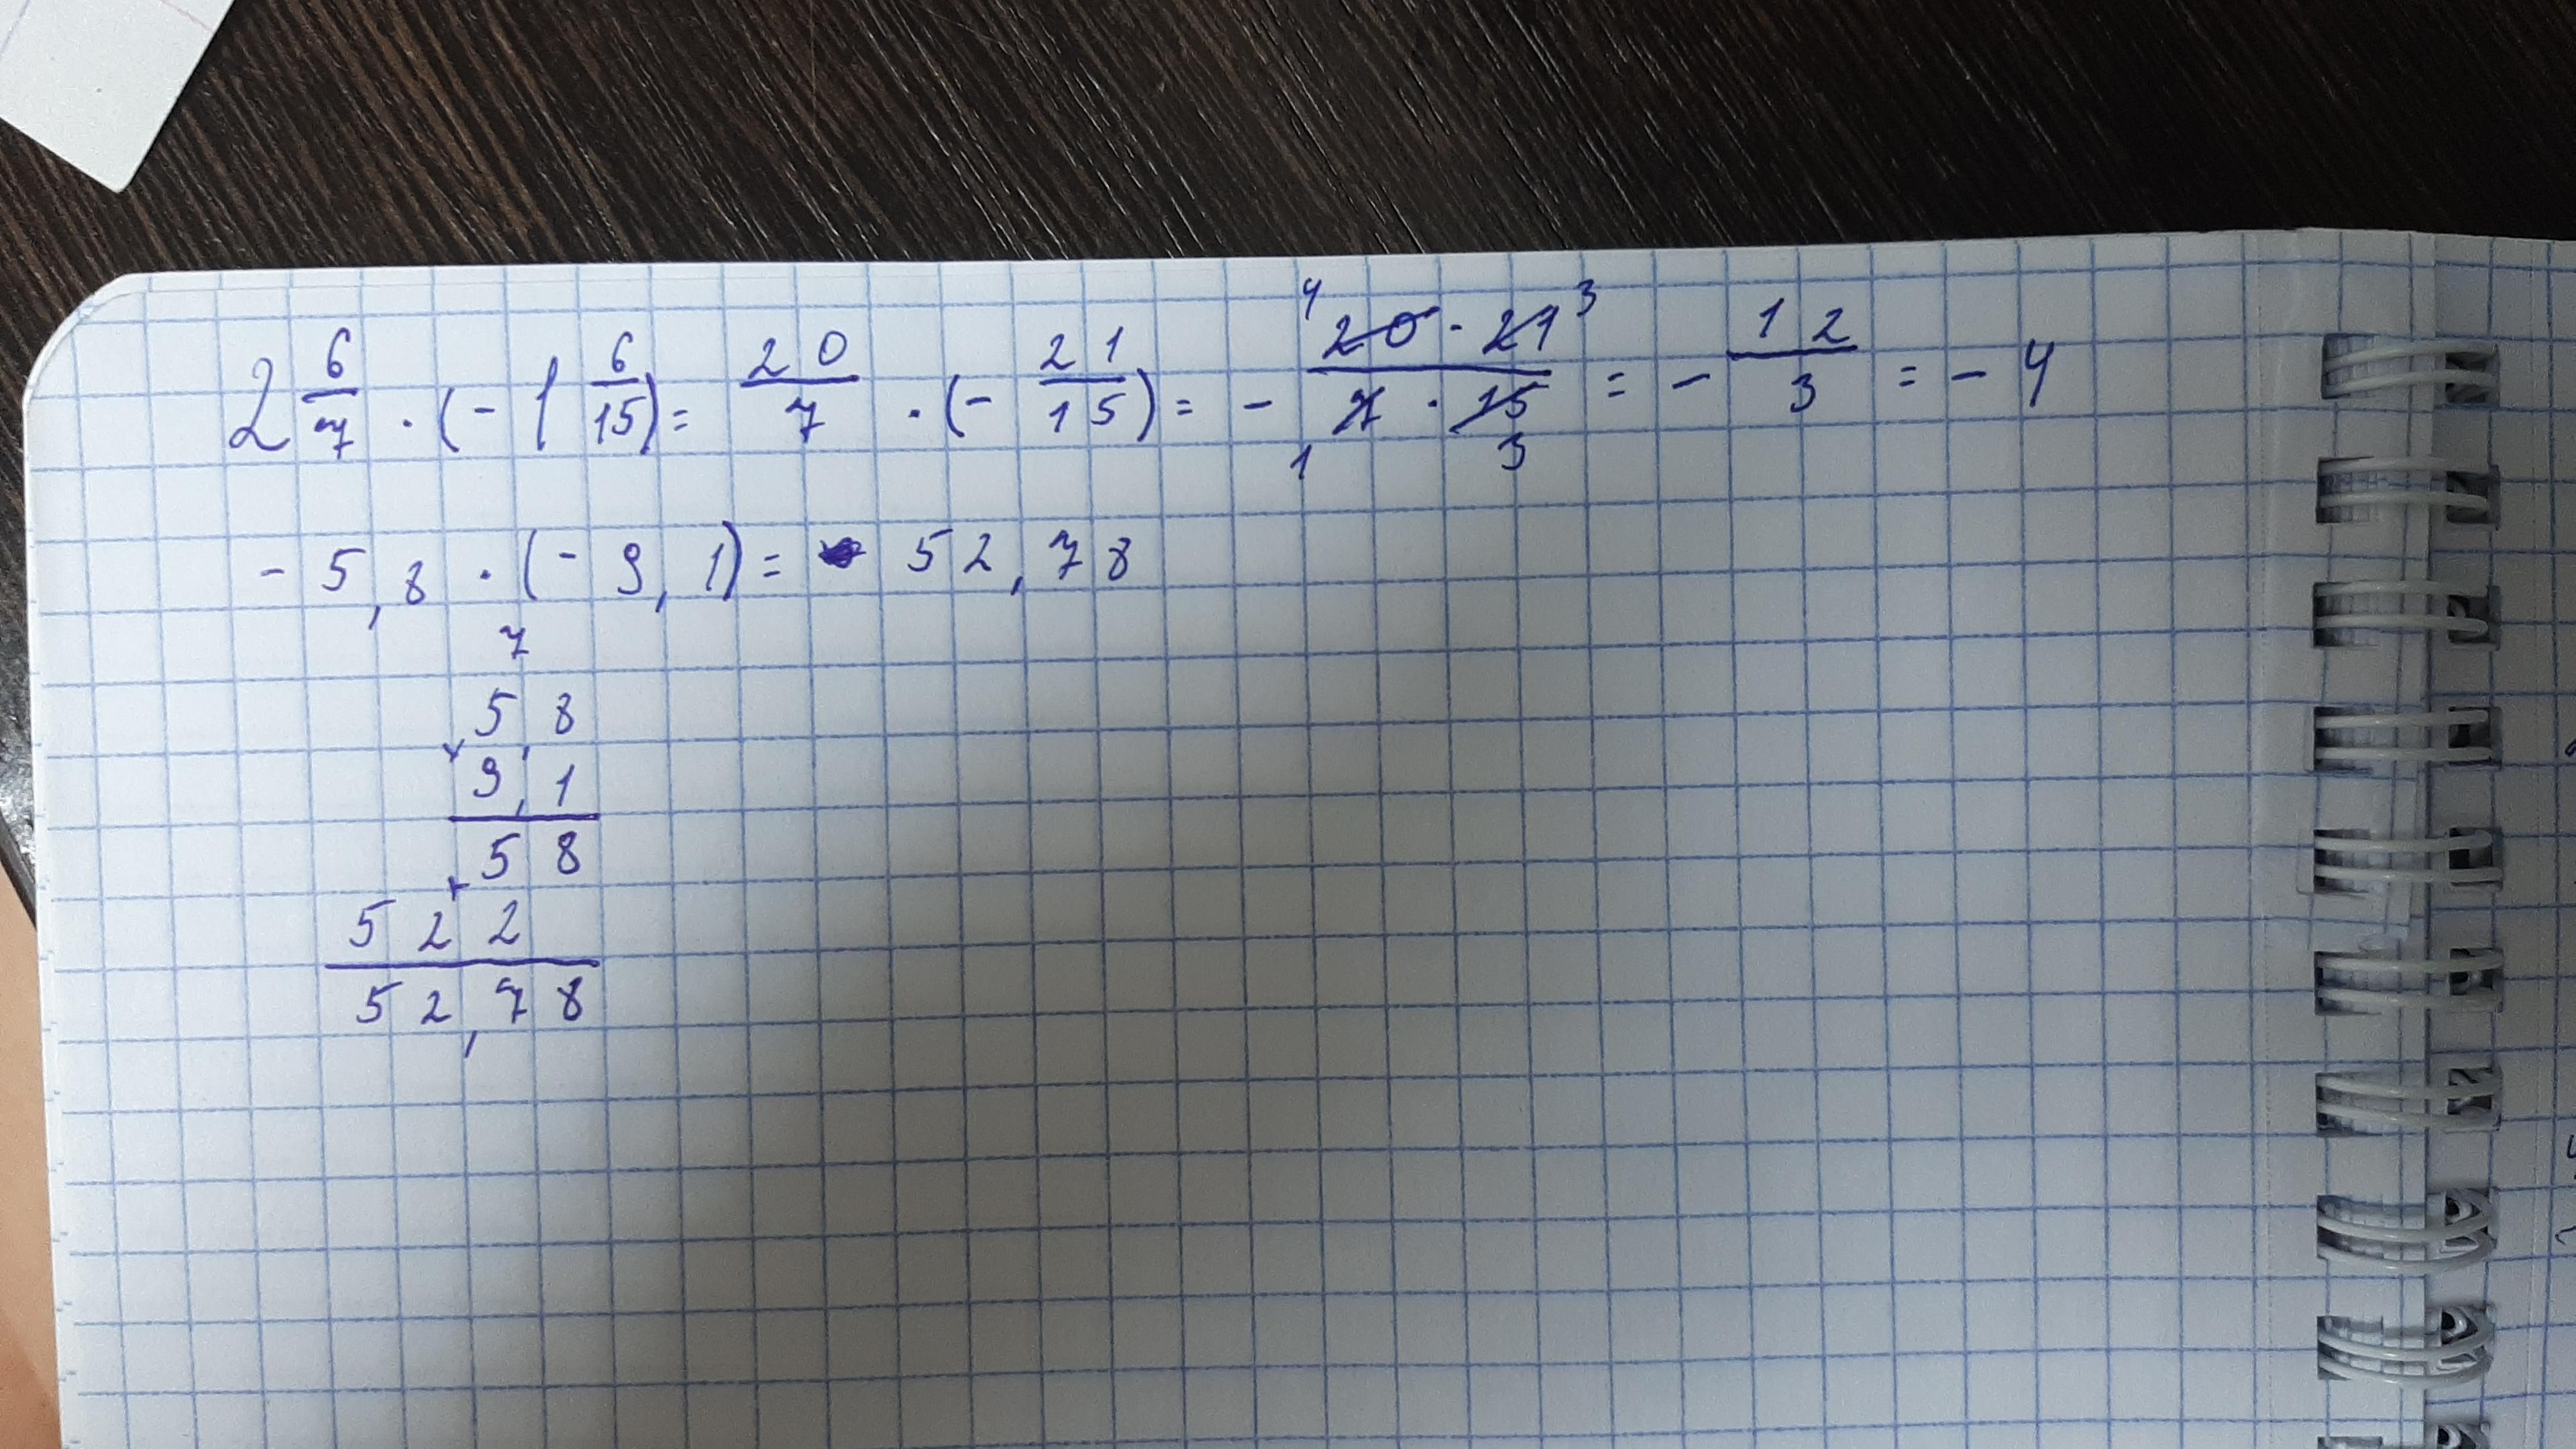 2 6/7 · (- 1 6/15) = 20/7 · (- 21/15) = - 20 · 21 / 7 · 15 = - 12/3 = - 4
4 3
1 3
- 5,8 · (- 9,1) = 52,78
7
5,8
× 9,1
58
+ 522
52,78